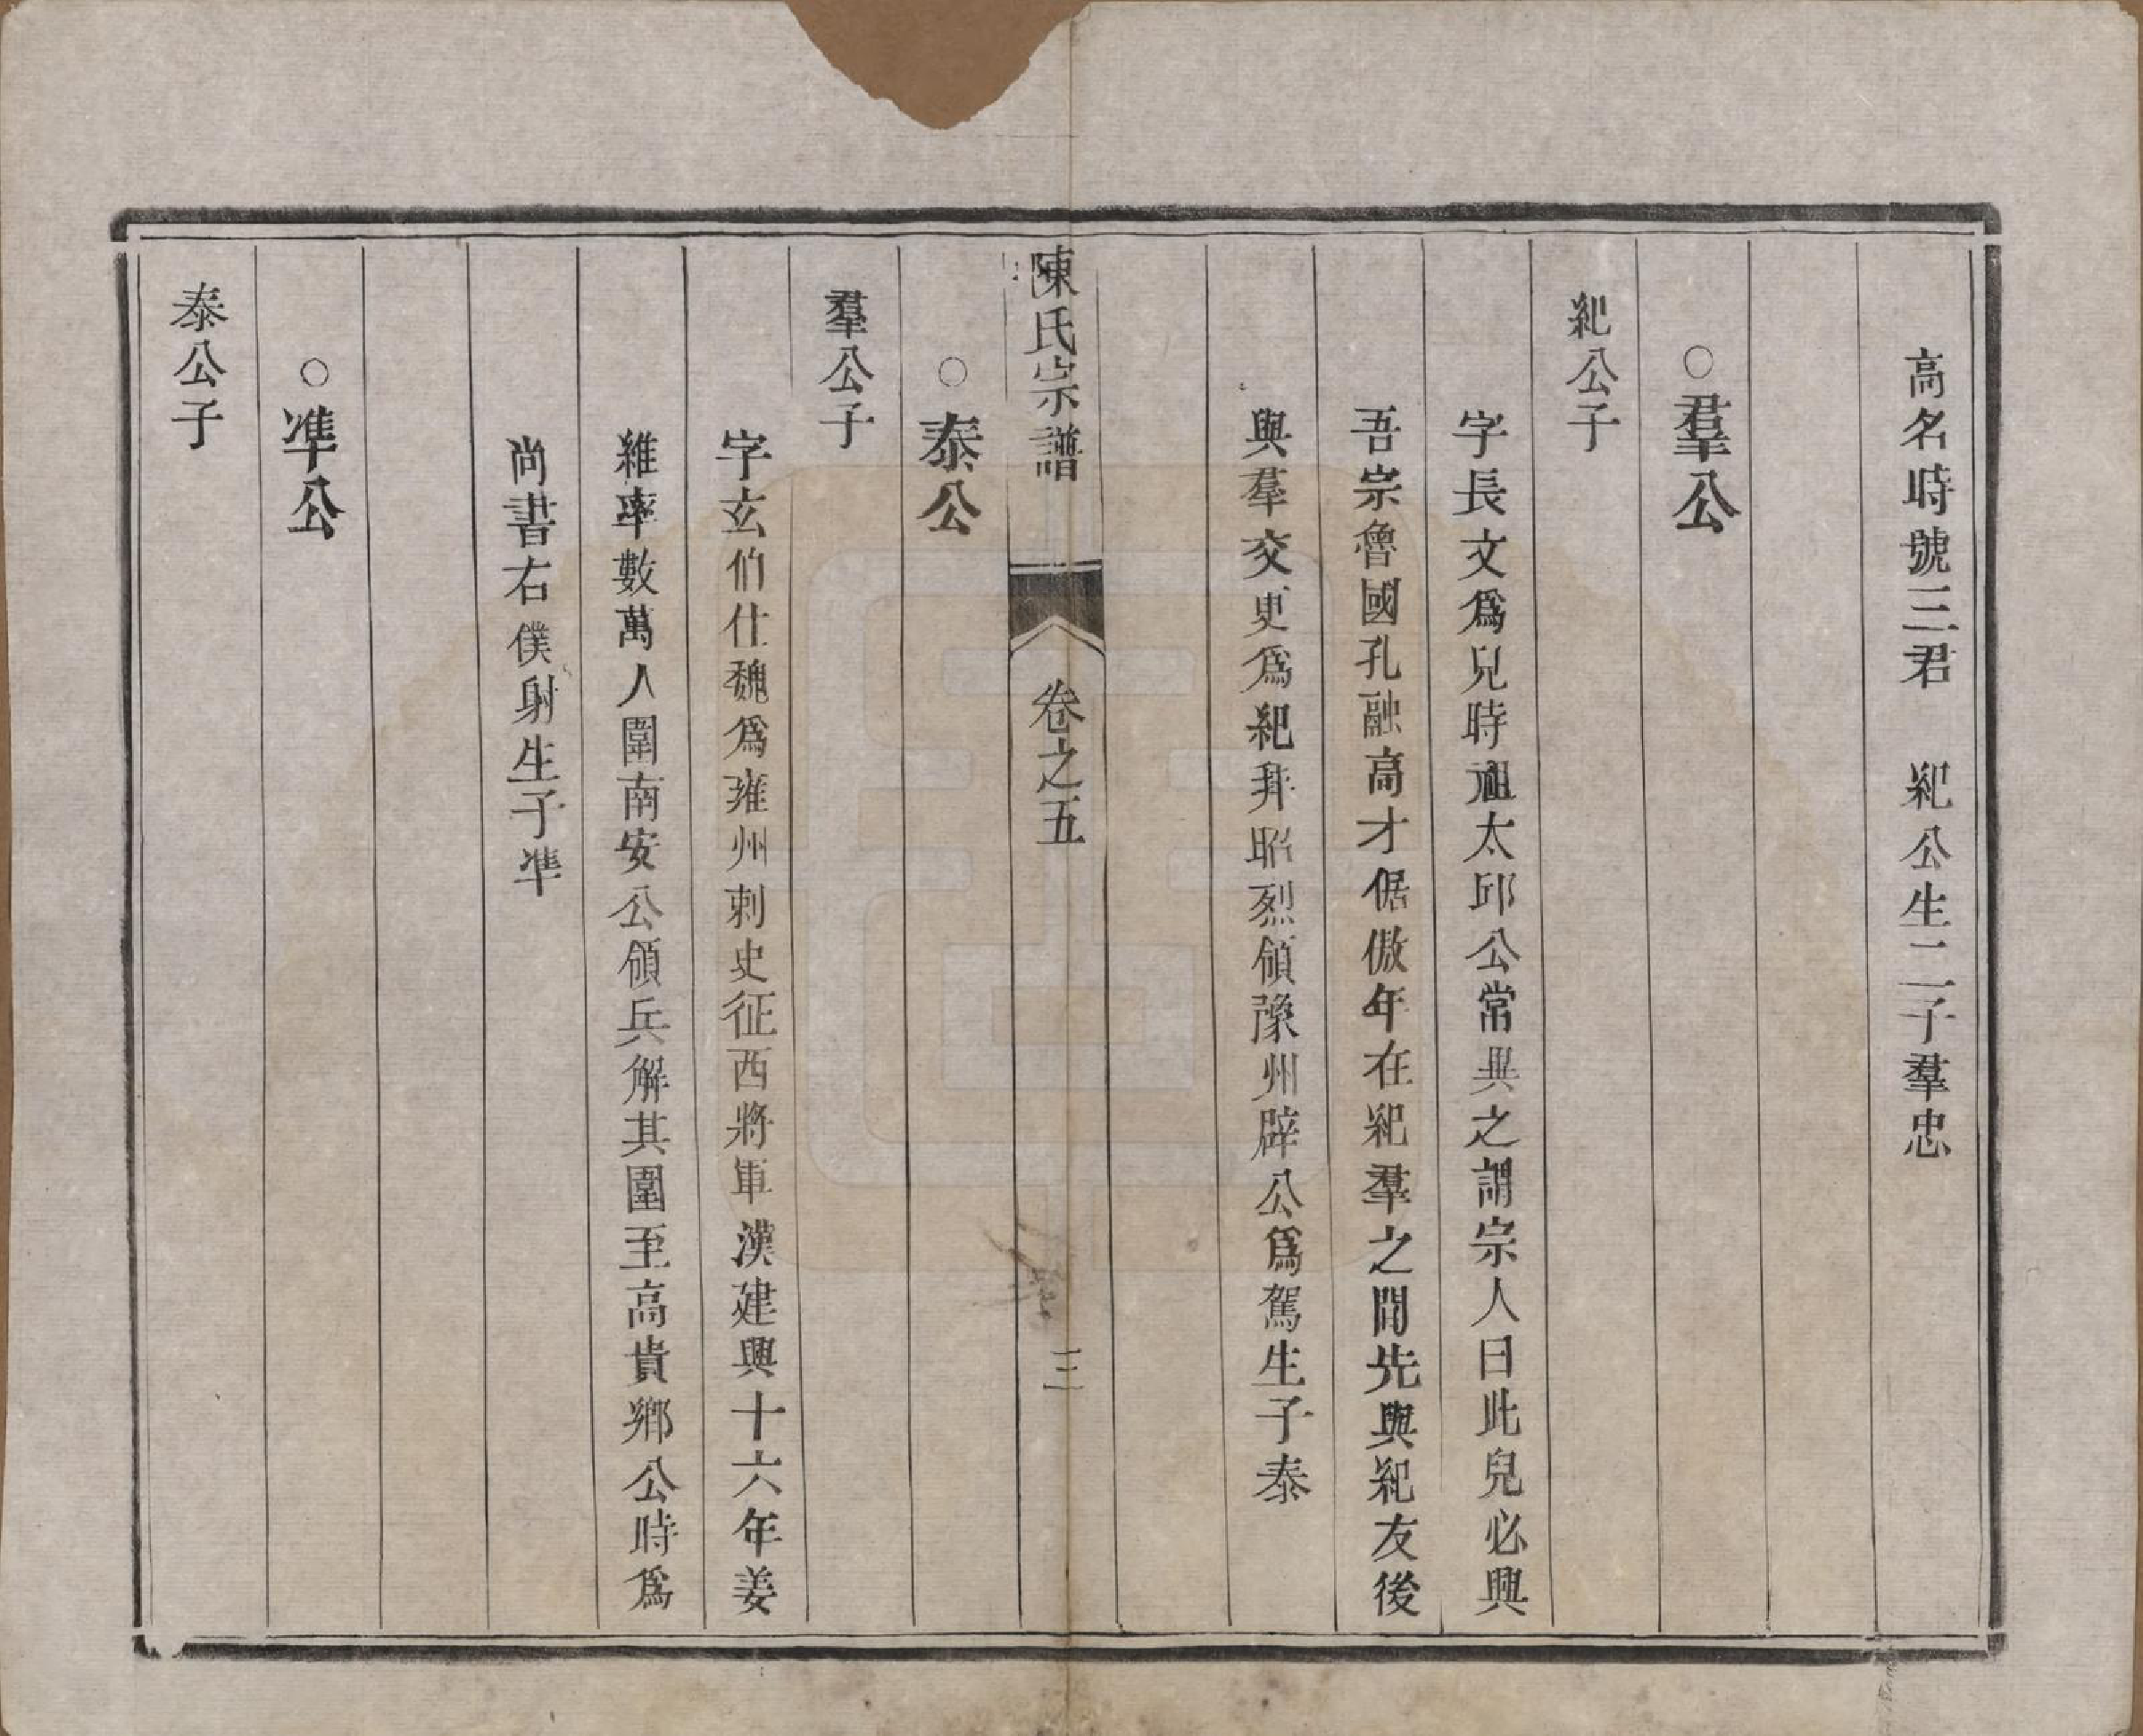 高名時號三君　紀公生二子羣忠
○羣公
紀公子
字長文爲兒時祖太邱公常異之謂宗人曰此兒必興
吾宗魯國孔融高才倨傲年在紀羣之間先與紀友後
與羣交更爲紀拜昭烈領豫州辟公爲駕生子泰
陳氏宗譜
卷之五
三
○泰公
羣公子
字玄伯仕魏爲雍州刺史征西將軍漢建興十六年姜
維率數萬人圍南安公領兵解其圍至高貴鄉公時爲
尚書右僕射生子準
○準公
泰公子